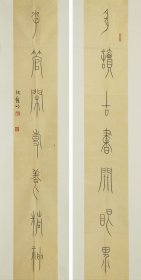 多讀古書開眼界
少管閒事養精神